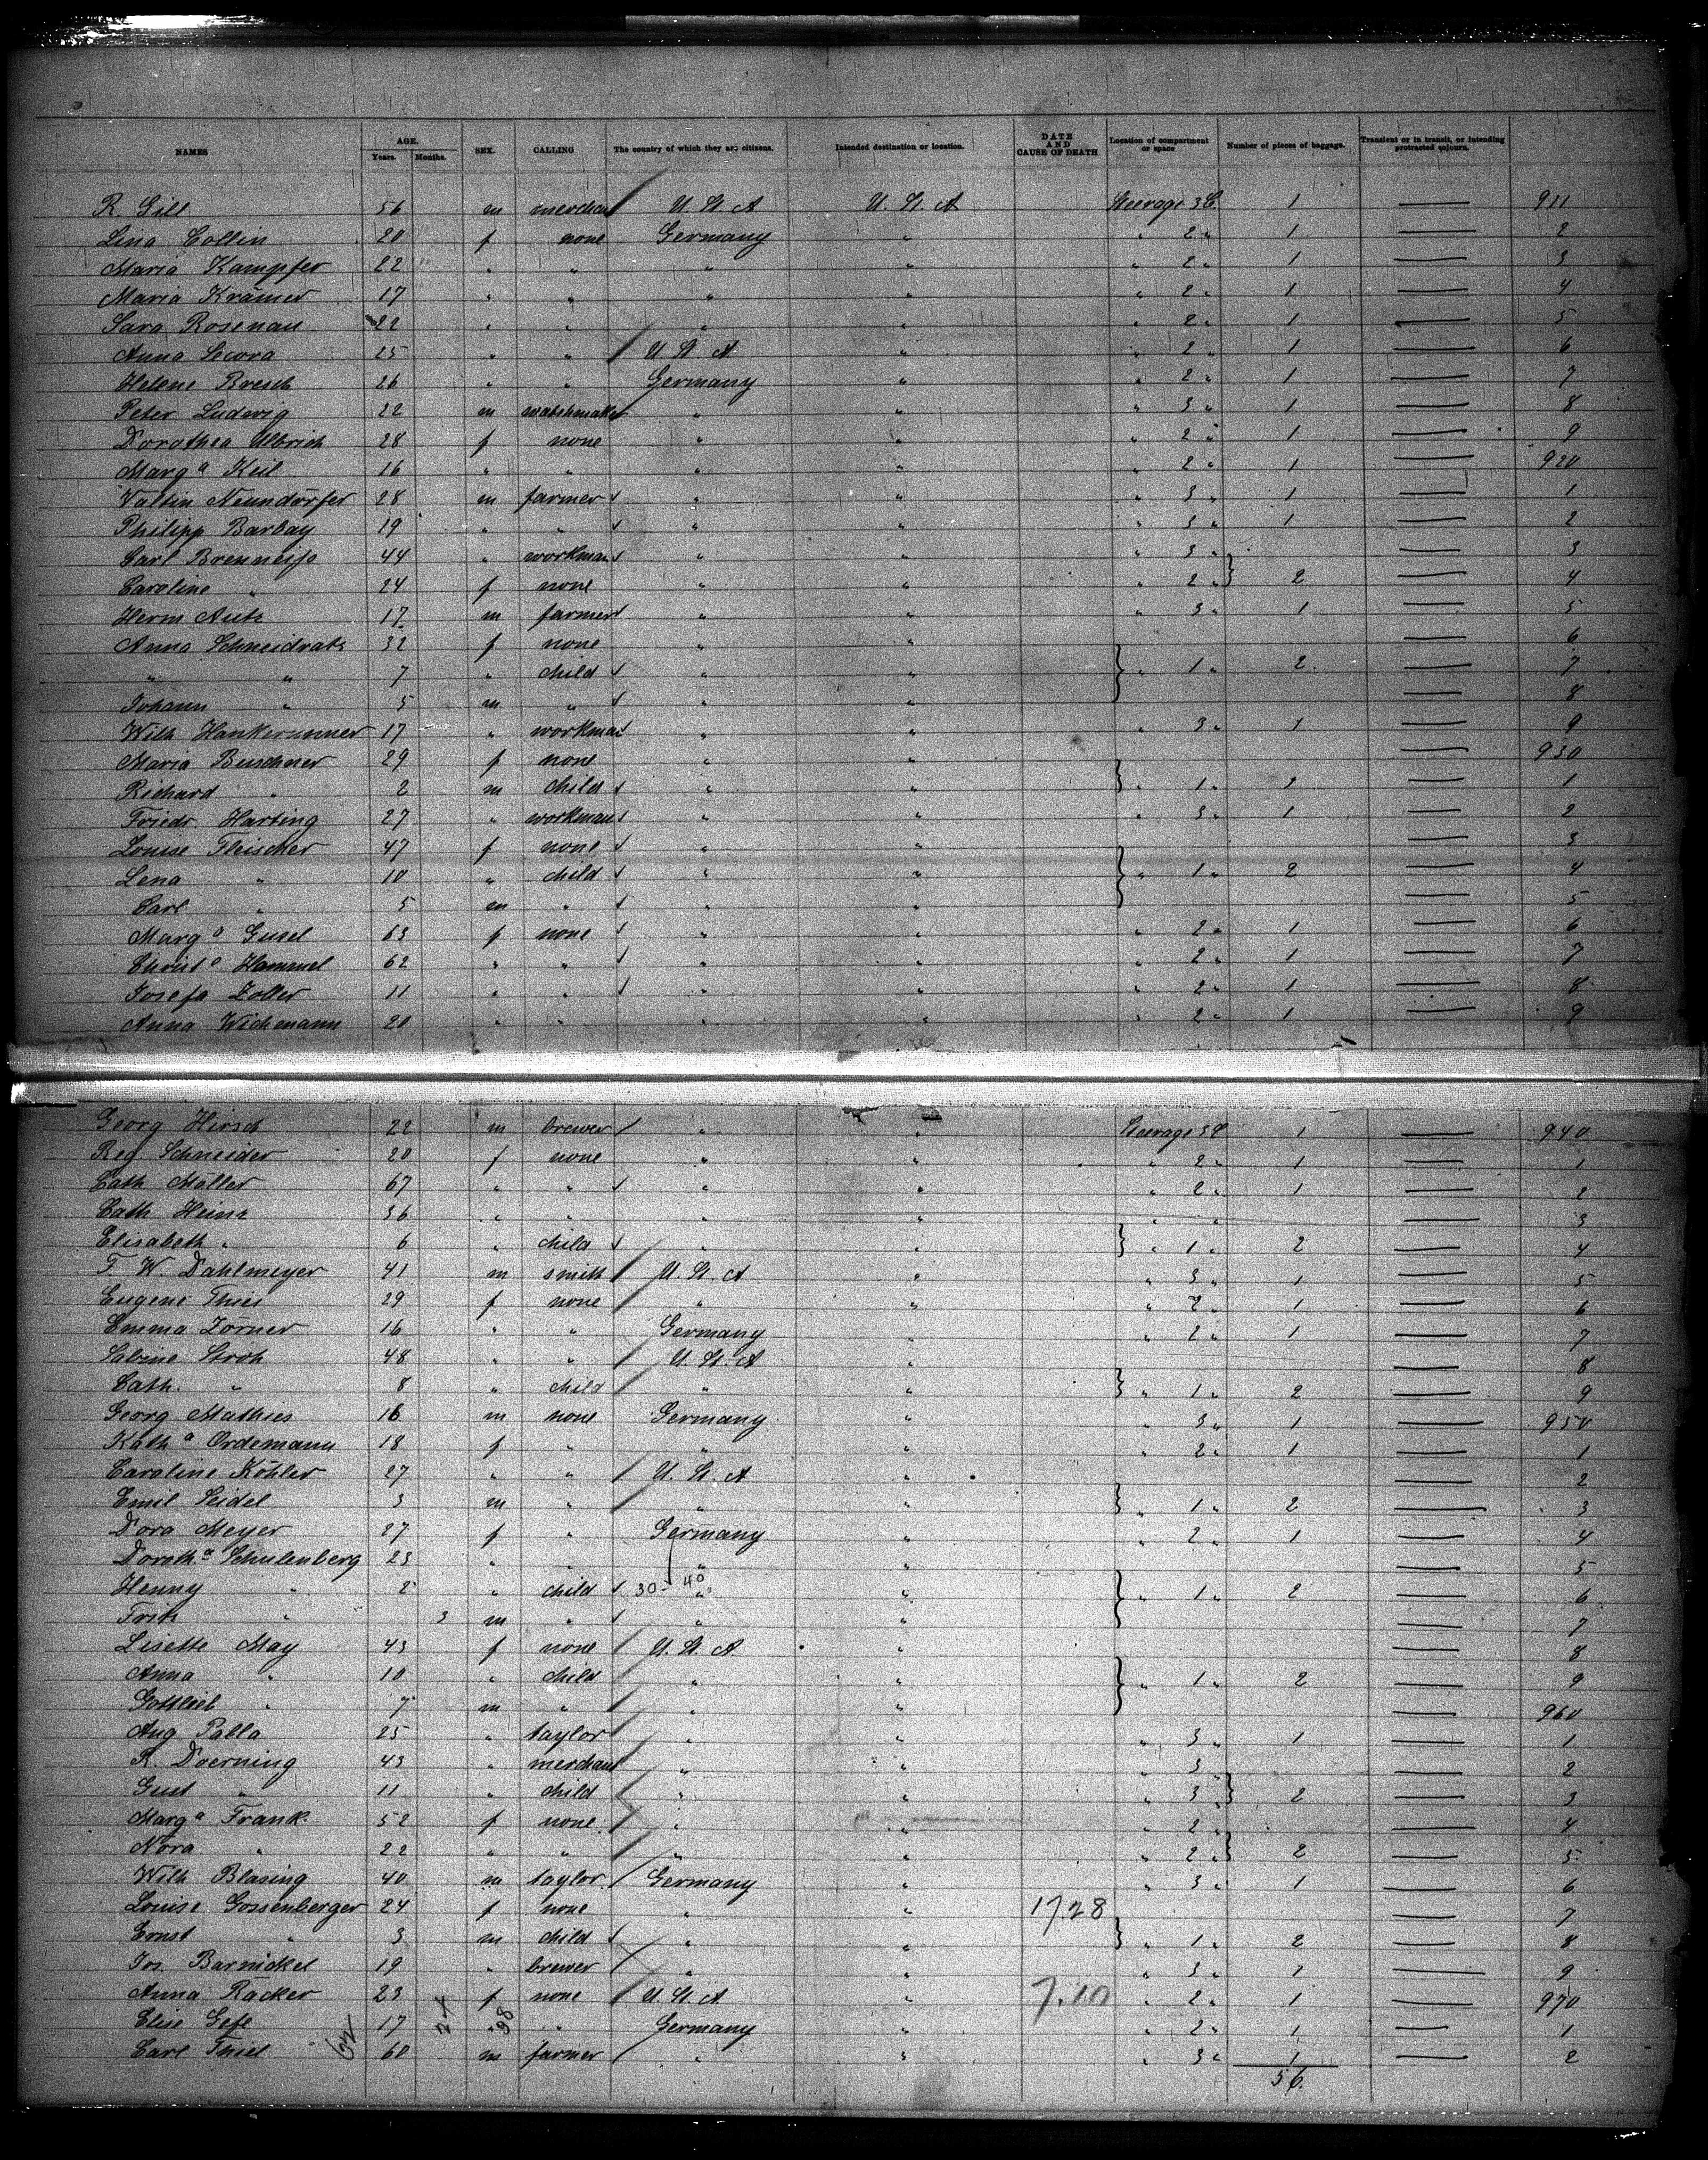 NAMES AGE. SEX. CALLING The country of which they are citizens. Intended destination or location. DATE AND CAUSE OF DEATH Location of compartment or space Number of pieces of baggage. Transient or in transit, or intending protracted sojourn.
Years. Months.
R. Gill 56 m merchan U. St. A U. St. A Steerage 3 C. 1 — 911
Lina Collin 20 f none Germany " " 2 " 1 — 2
Maria Kampfer 22 " " " " " 2 " 1 — 3
Maria Krämer 17 " " " " " 2 " 1 — 4
Sara Rosenau 22 " " " " " 2 " 1 — 5
Anna Secora 25 " " U St A " " 2 " 1 — 6
Helene Bresch 26 " " Germany " " 2 " 1 — 7
Peter Ludwig 22 m watchmaker " " " 3 " 1 — 8
Dorothea Ulbrich 28 f none " " " 2 " 1 — 9
Marg a Keil 16 " " " " " 2 " 1 — 920
Valtin Neundörfer 28 m farmer " " " 3 " 1 — 1
Philipp Barbay 19 " " " " " 3 " 1 — 2
Carl Brenneiss 44 " workman " " " 3 " — 3
Caroline " 24 f none " " " 2 " 2 — 4
Herm Autz 17 m farmer " " " 3 " 1 — 5
Anna Schneidratz 32 f none " " — 6
" " 7 " child " " " 1 " 2 — 7
Johann " 5 m " " " — 8
Wilh Hankerumner 17 " workman " " " 3 " 1 — 9
Maria Buschner 29 f none " " — 930
Richard " 2 m child " " " 1 " 1 — 1
Friedr. Harting 27 " workman " " " 3 " 1 — 2
Louise Fleischer 47 f none " " — 3
Lena " 10 " child " " " 1 " 2 — 4
Carl " 5 m " " " — 5
Marg a Gusel 63 f none " " " 2 " 1 — 6
Christ a Hammel 62 " " " " " 2 " 1 — 7
Josefa Zoller 11 " " " " " 2 " 1 — 8
Anna Wichmann 20 " " " " " 2 " 1 — 9
Georg Hirsch 22 m brewer " " Steerage 3 C 1 — 940
Reg Schneider 20 f none " " " 2 " 1 — 1
Cath Möller 67 " " " " " 2 " 1 — 2
Cath Heinz 36 " " " " " " — 3
Elisabeth " 6 " child " " " 1 " 2 — 4
F. W. Dahlmeyer 41 m smith U. St. A " " 3 " 1 — 5
Eugene Thies 29 f none " " " 2 " 1 — 6
Emma Zörner 16 " " Germany " " 2 " 1 — 7
Sabine Stroh 48 " " U. St. A " — 8
Cath. " 8 " child " " " 1 " 2 — 9
Georg Mathies 16 m none Germany " " 3 " 1 — 950
Kath a Ordemann 18 f " " " " 2 " 1 — 1
Caroline Köhler 27 " " U. St. A " — 2
Emil Seidel 3 m " " " " 1 " 2 — 3
Dora Meyer 27 f " Germany " " 2 " 1 — 4
Doroth. a Schulenberg 23 " " " " — 5
Henny " 2 " child 30- 40 " " " 1 " 2 — 6
Fritz " 3 m " " " — 7
Lisette May 43 f none U. St. A. " — 8
Anna " 10 " child " " " 1 " 2 — 9
Gottlieb " 7 m " " " — 960
Aug Palla 25 " taylor " " " 3 " 1 — 1
R. Doerning 43 " merchant " " " 3 " — 2
Gust " 11 " child " " " 3 " 2 — 3
Marg a Frank. 52 f none " " " 2 " — 4
Nora " 22 " " " " " 2 " 2 — 5
Wilh Blasing 40 m taylor Germany " " 3 " 1 — 6
Louise Gossenberger 24 f none " " 17.28 — 7
Ernst " 3 m child " " " 1 " 2 — 8
Jos. Barnickel 19 " brewer " " " 3 " 1 — 9
Anna Räcker 23 f none U. St. A. " 7.10 " 2 " 1 — 970
Elise Gefe 17 " " Germany " " 2 " 1 — 1
Carl Thiel 60 m farmer " " " 3 " 1 — 2
56.